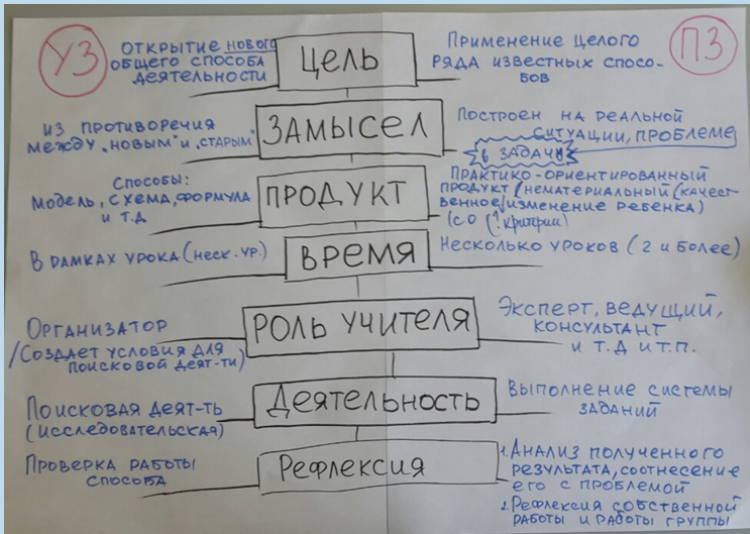 УЗ
ПЗ
ОТКРЫТИЕ НОВОГО
ОБЩЕГО СПОСОБА
ДЕЯТЕЛЬНОСТИ
ЦЕЛЬ
ПРИМЕНЕНИЕ ЦЕЛОГО
РЯДА ИЗВЕСТНЫХ СПОСО-
БОВ
ИЗ ПРОТИВОРЕЧИЯ
МЕЖДУ „НОВЫМ" И „СТАРЫМ"
ЗАМЫСЕЛ
ПОСТРОЕН НА РЕАЛЬНОЙ
СИТУАЦИИ, ПРОБЛЕМЕ
ЗАДАЧИ
СПОСОБЫ:
МОДЕЛЬ, СХЕМА, ФОРМУЛА
И Т.Д
ПРОДУКТ
ПРАКТИКО-ОРИЕНТИРОВАННЫЙ
ПРОДУКТ (НЕМАТЕРИАЛЬНЫЙ (КАЧЕСТ-
ВЕННОЕ/ИЗМЕНЕНИЕ РЕБЕНКА)
(СО (критерии)
В РАМКАХ УРОКА (НЕСК. УР.)
ВРЕМЯ
НЕСКОЛЬКО УРОКОВ (2 И БОЛЕЕ)
ОРГАНИЗАТОР
/СОЗДАЕТ УСЛОВИЯ ДЛЯ
ПОИСКОВОЙ ДЕЯТ-ТИ)
РОЛЬ УЧИТЕЛЯ
ЭКСПЕРТ, ВЕДУЩИЙ,
КОНСУЛЬТАНТ
И Т.Д И Т.П.
ПОИСКОВАЯ ДЕЯТ-ТЬ
(ИССЛЕДОВАТЕЛЬСКАЯ)
ДЕЯТЕЛЬНОСТЬ
ВЫПОЛНЕНИЕ СИСТЕМЫ
ЗАДАНИЙ
ПРОВЕРКА РАБОТЫ
СПОСОБА
РЕФЛЕКСИЯ
1. АНАЛИЗ ПОЛУЧЕННОГО
РЕЗУЛЬТАТА, СООТНЕСЕНИЕ
ЕГО С ПРОБЛЕМОЙ
2. РЕФЛЕКСИЯ СОБСТВЕННОЙ
РАБОТЫ И РАБОТЫ ГРУППЫ